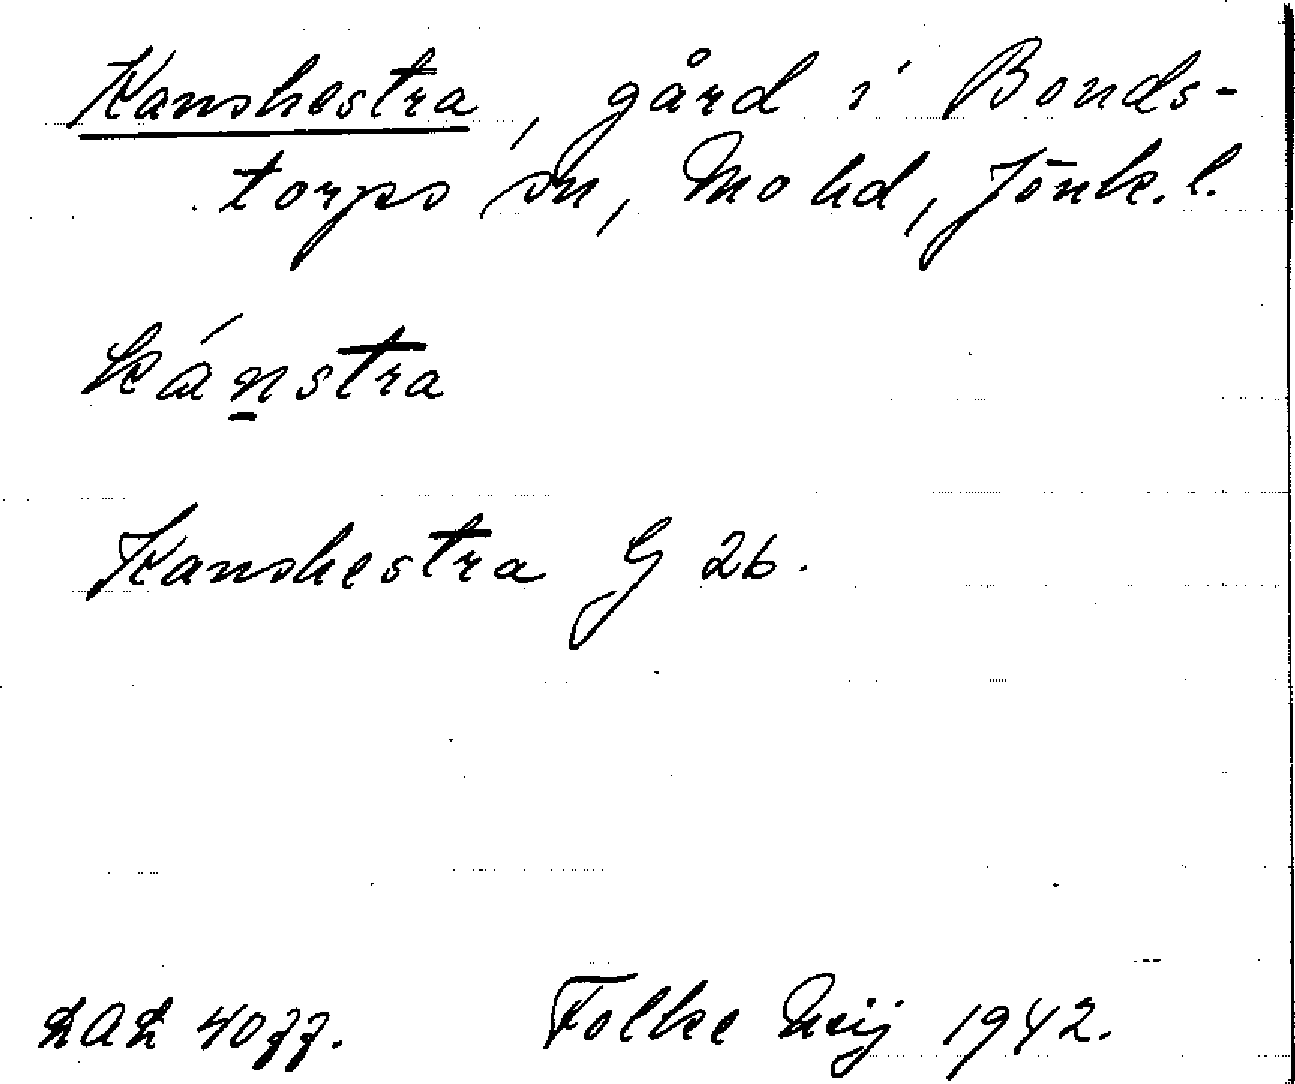 Kanshestra, gård i Bonds-
torps sn, Mo hd, Jönk. l.
kánstra
Kanshestra G 26.
LAL 4077.
Folke Meij 1942.